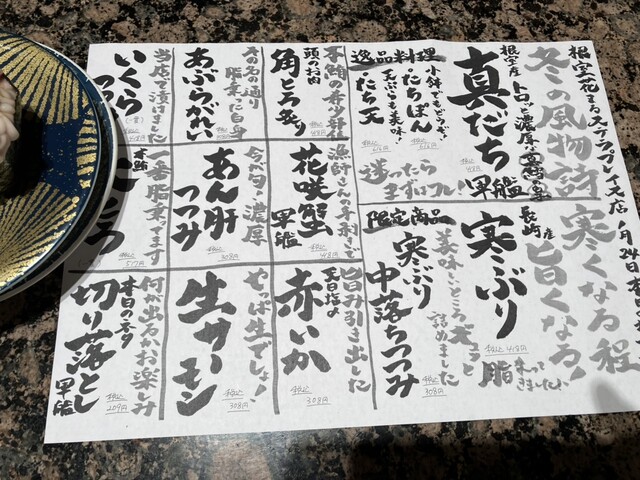 根室花まるステラプレイス店 1月24日
冬の風物詩
寒くなる程
旨くなる！
根室産
トロッと濃厚
真だち
軍艦
税込 418円
長崎産
寒ぶり
税込 418円
脂のってきました！
逸品料理
小鉢でもどうぞ！
たちぽん
天ぷらも美味！
たち天
迷ったら
まずはコレ！
限定商品
寒ぶり
中落ちつつみ
美味しいところぎゅっと
詰めました
税込 308円
本鮪の希少部位
頭のお肉
角とろ炙り
漁師さんの手剥きで
花咲蟹
軍艦
税込 418円
旨み引き出した
赤いか
税込 308円
その名の通り
脂乗った白身
あぶらがれい
今が旬の濃厚
あん肝
つつみ
税込 308円
やっぱ生でしょ！
生サーモン
税込 308円
当店で漬けました
いくら
一番脂乗ってます
本鮪
とろ
税込 517円
何が出るかお楽しみ
本日のネタ
切り落とし
軍艦
税込 209円